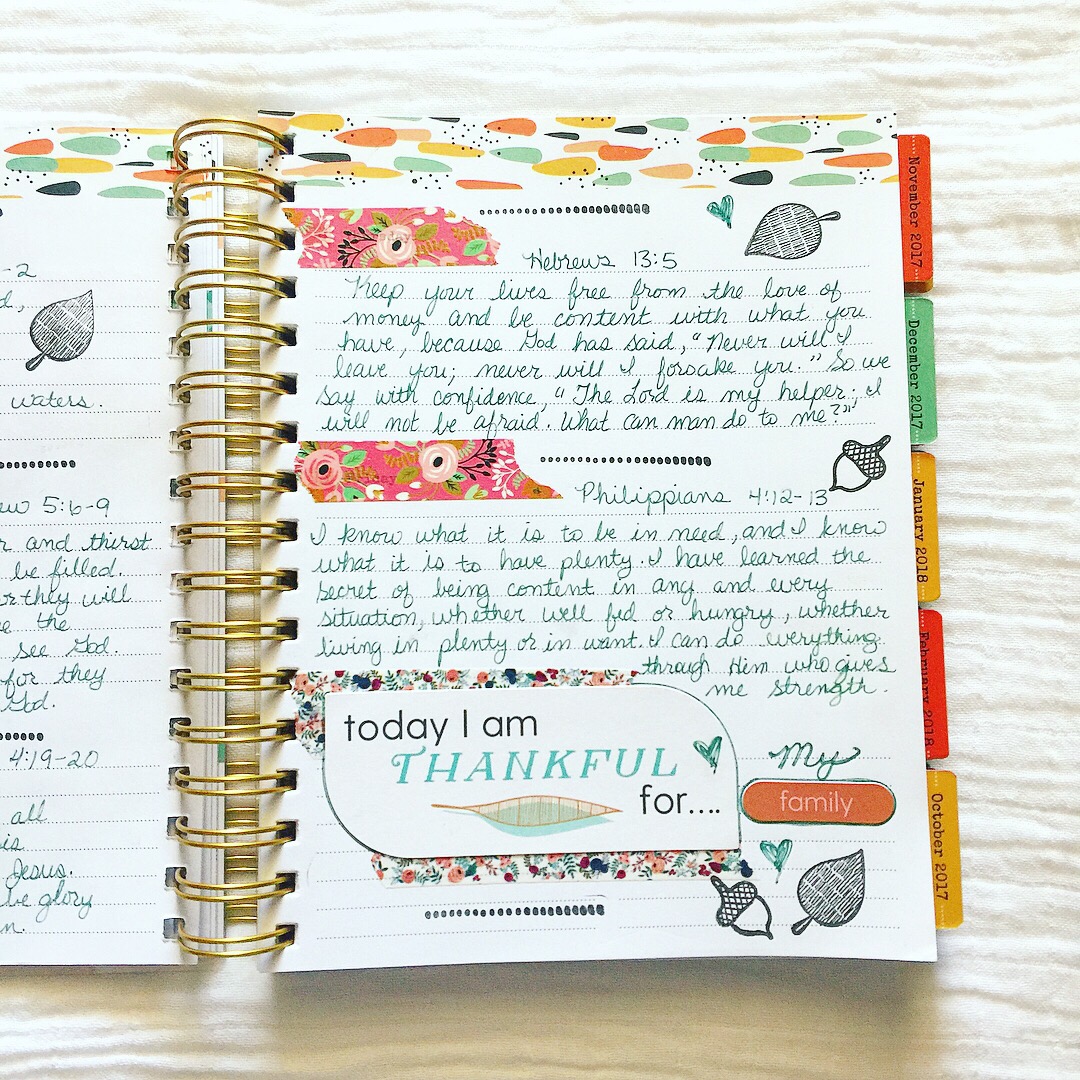 -2
d,
waters.
5:6-9
r and thirst
be filled.
they will
e the
see God.
for they
God.
4:19-20
all
is
Jesus.
be glory
n.
Hebrews 13:5
Keep your lives free from the love of
money and be content with what you
have, because God has said, "Never will I
leave you; never will I forsake you." So we
say with confidence, "The Lord is my helper; I
will not be afraid. What can man do to me?"
Philippians 4:12-13
I know what it is to be in need, and I know
what it is to have plenty. I have learned the
secret of being content in any and every
situation, whether well fed or hungry, whether
living in plenty or in want. I can do everything
through Him who gives
me strength.
today I am
THANKFUL
for....
My
family
November 2017
December 2017
January 2018
February 2018
October 2017